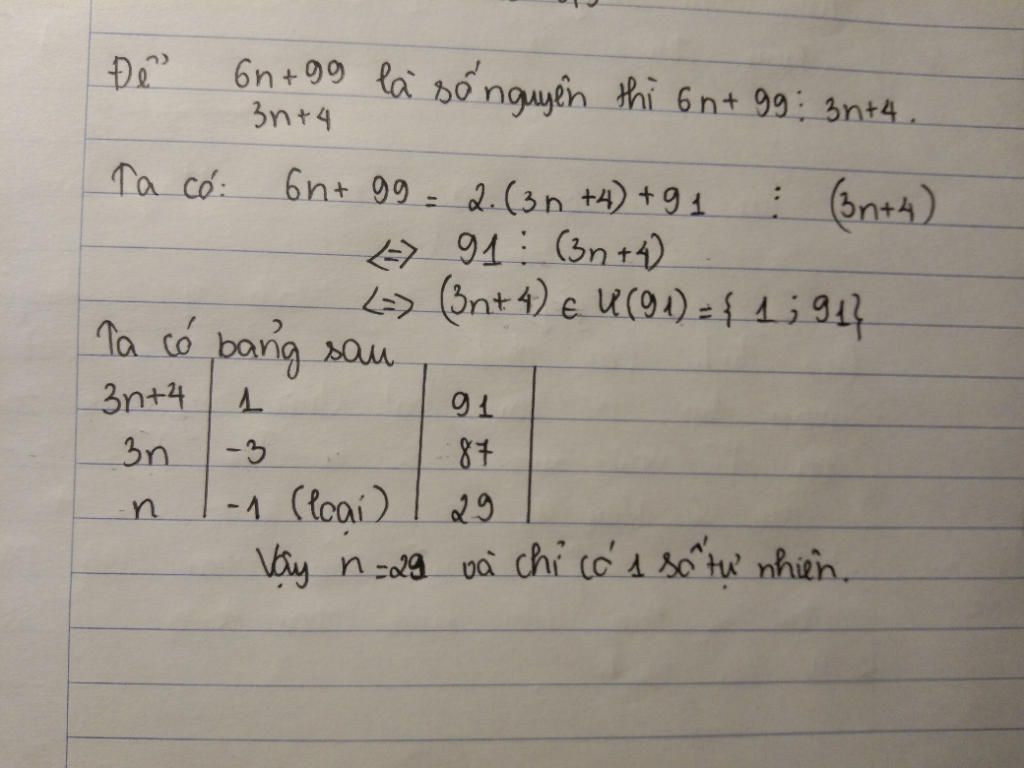 Để 6n+99 / 3n+4 là số nguyên thì 6n+ 99 ⋮ 3n+4.
Ta có: 6n+ 99 = 2.(3n +4) + 91 ⋮ (3n+4)
<=> 91 ⋮ (3n+4)
<=> (3n+4) ∈ Ư(91) = { 1 ; 91}
Ta có bảng sau
3n+4 | 1 | 91
3n | -3 | 87
n | -1 (loại) | 29
Vậy n =29 và chỉ có 1 số tự nhiên.